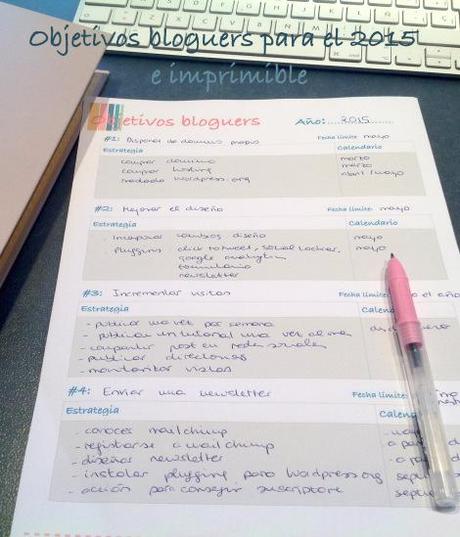 Objetivos bloguers para el 2015
e imprimible
Objetivos bloguers Año: 2015
#1: Disponer de dominio propio Fecha límite: mayo
Estrategia Calendario
comprar dominio marzo
comprar hosting marzo
traslado wordpress.org abril / mayo
#2: Mejorar el diseño Fecha límite: mayo
Estrategia Calendario
Incorporar cambios diseño mayo
Pluggins: click to tweet, social locker, mayo
google analytics
formulario
newsletter
#3: Incrementar visitas Fecha límite: el año
Estrategia
- publicar una vez por semana
- publicar un tutorial una vez al mes
- compartir post en redes sociales
- publicar directorios
- monitorizar visitas
#4: Enviar una newsletter Fecha límite:
Estrategia
- conocer mailchimp
- registrarse a mailchimp
- diseñar newsletter
- instalar pluggins para wordpress.org
- acción para conseguir suscriptore